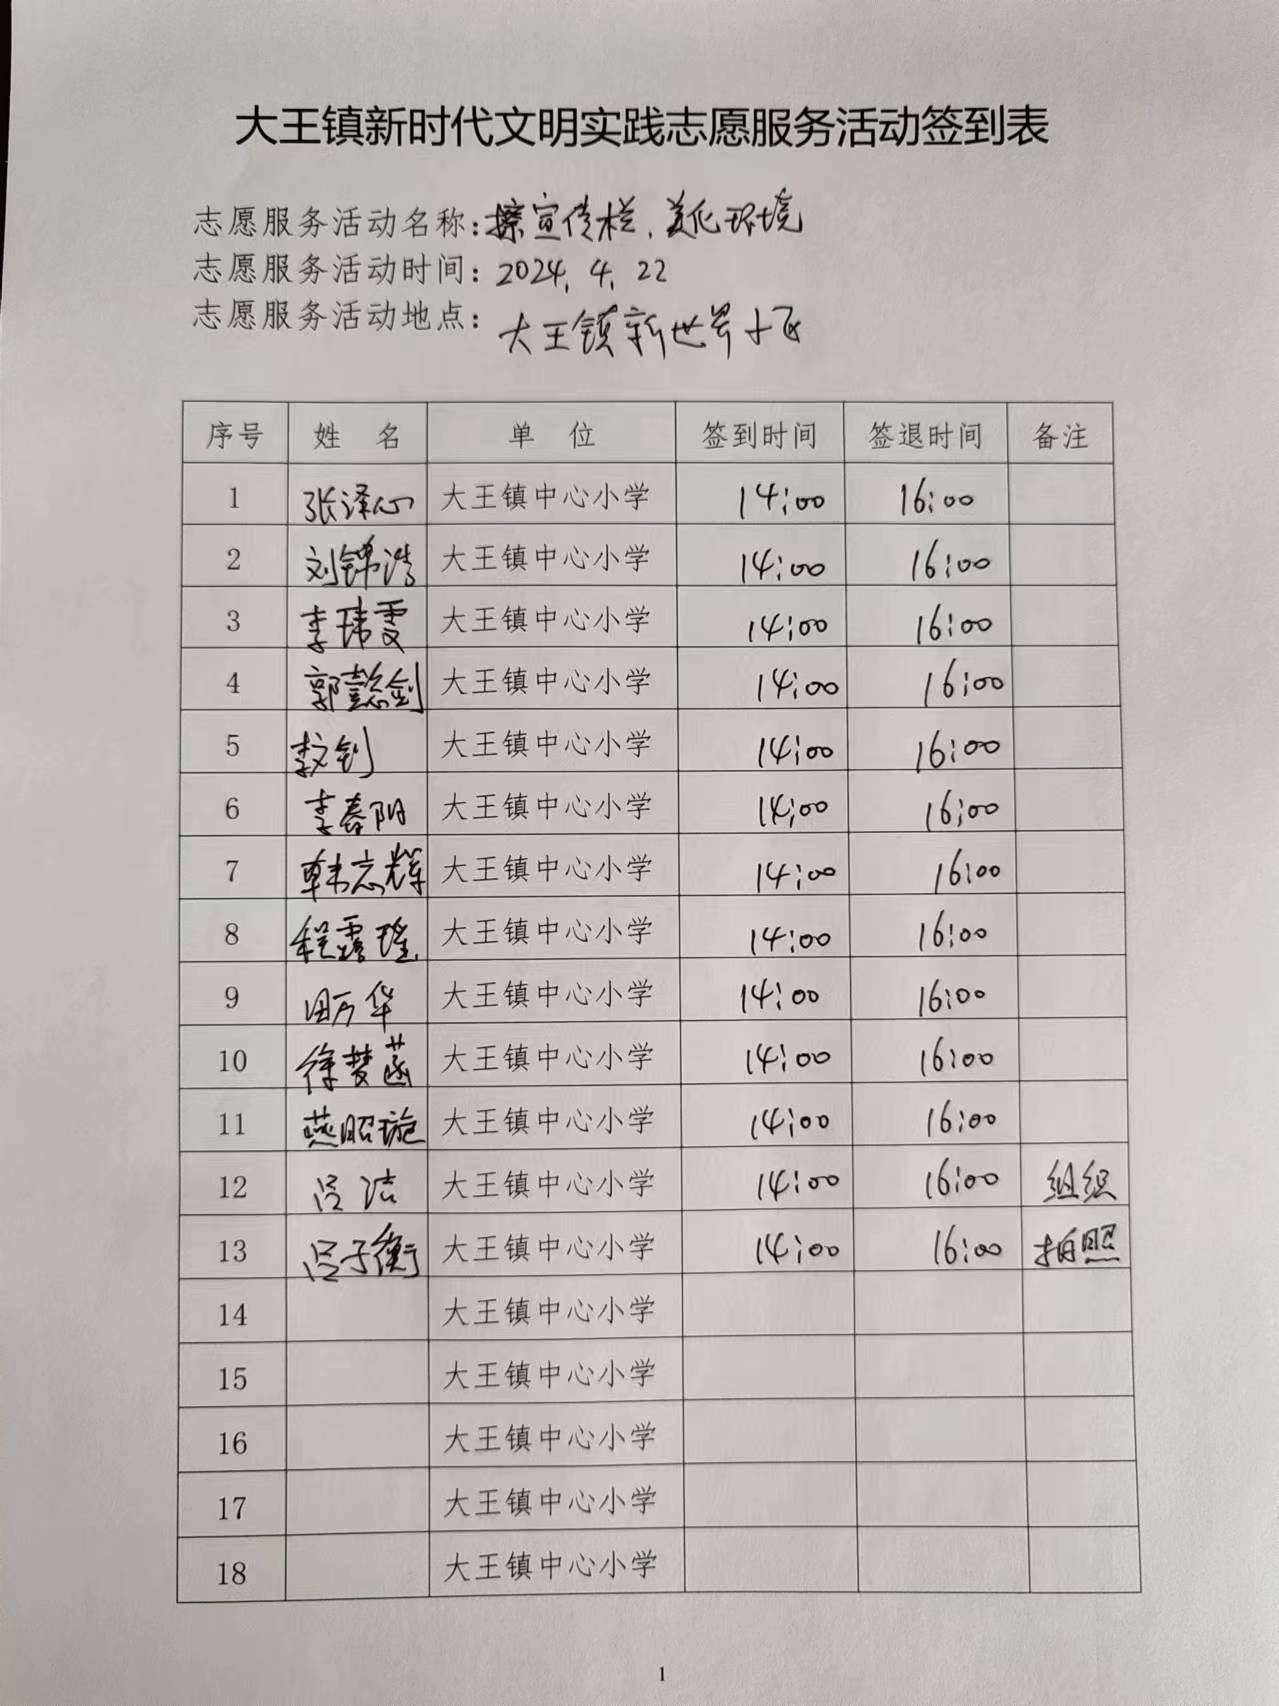 大王镇新时代文明实践志愿服务活动签到表
志愿服务活动名称：擦宣传栏、美化环境
志愿服务活动时间：2024.4.22
志愿服务活动地点：大王镇新世界小区
序号 姓 名 单 位 签到时间 签退时间 备注
1 张泽心 大王镇中心小学 14:00 16:00
2 刘锦浩 大王镇中心小学 14:00 16:00
3 李玮雯 大王镇中心小学 14:00 16:00
4 郭懿剑 大王镇中心小学 14:00 16:00
5 大王镇中心小学 14:00 16:00
6 李春阳 大王镇中心小学 14:00 16:00
7 韩志辉 大王镇中心小学 14:00 16:00
8 程露瑶 大王镇中心小学 14:00 16:00
9 田万华 大王镇中心小学 14:00 16:00
10 徐梦菡 大王镇中心小学 14:00 16:00
11 燕昭璇 大王镇中心小学 14:00 16:00
12 吕洁 大王镇中心小学 14:00 16:00 组织
13 吕子衡 大王镇中心小学 14:00 16:00 拍照
14 大王镇中心小学
15 大王镇中心小学
16 大王镇中心小学
17 大王镇中心小学
18 大王镇中心小学
1